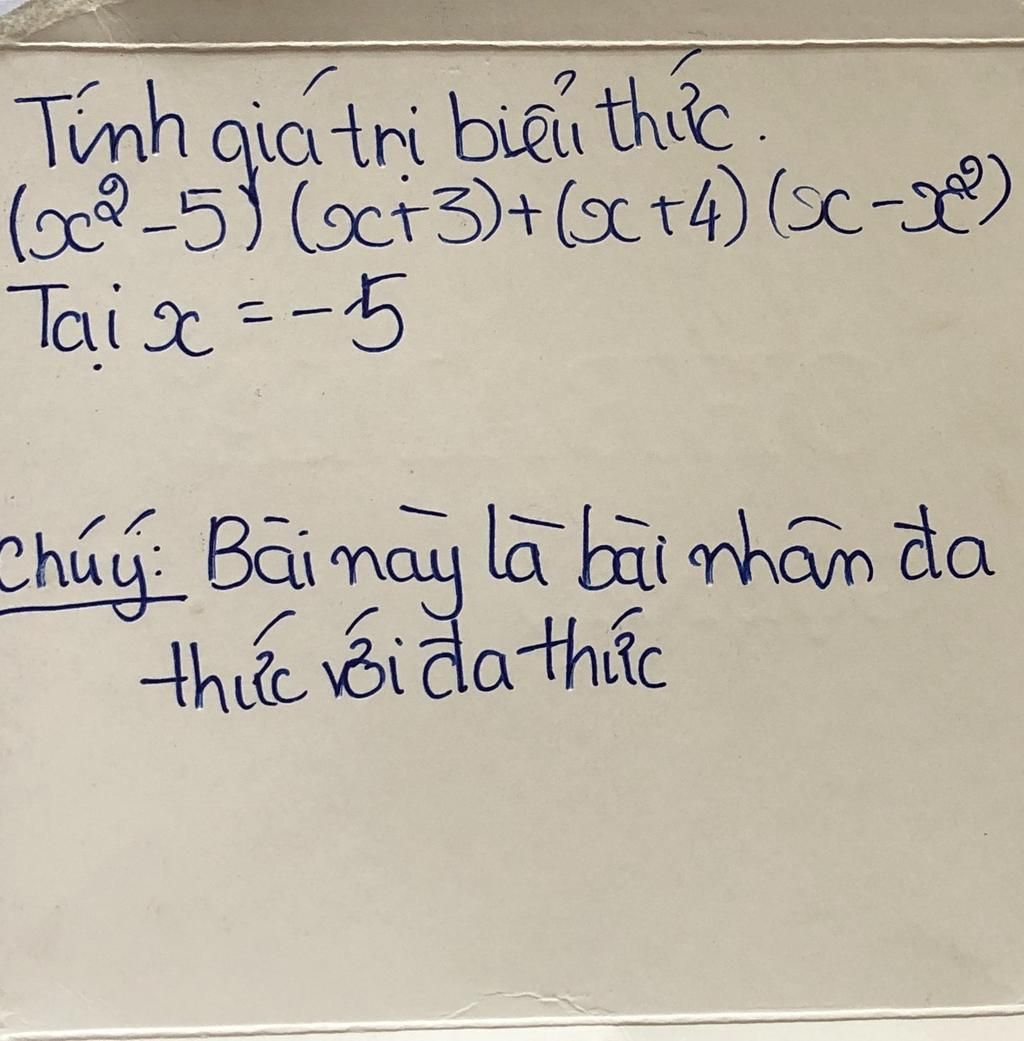 Tính giá trị biểu thức.
(x² - 5) (x + 3) + (x + 4) (x - x²)
Tại x = -5
Chú ý: Bài này là bài nhân đa
thức với đa thức